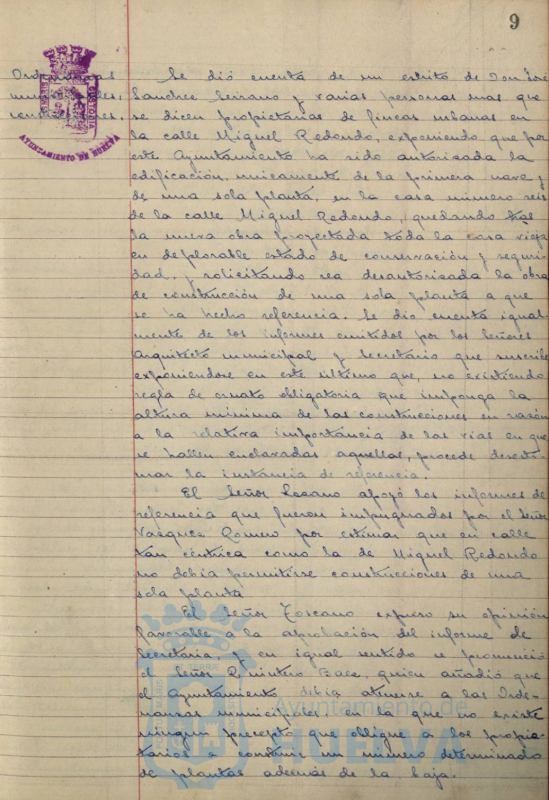 9
Ordenanzas
municipales,
Se dió cuenta de un escrito de Don José
Sanchez Serrano y varias personas mas que
se dicen propietarias de fincas urbanas en
la calle Miguel Redondo, exponiendo que por
este Ayuntamiento ha sido autorizada la
edificación, unicamente de la primera nave y
de una sola planta, en la casa número seis
de la calle Miguel Redondo, quedando tras
la nueva obra proyectada toda la casa vieja
en deplorable estado de conservación y seguri-
dad, y solicitando sea desautorizada la obra
de construcción de una sola planta a que
se ha hecho referencia. Se dio cuenta igual-
mente de los informes emitidos por los Señores
Arquitecto municipal y Secretario que suscribe
exponiendose en este ultimo que, no existiendo
regla de ornato obligatoria que imponga la
altura minima de las construcciones en razón
a la relativa importancia de las vias en que
se hallen enclavadas aquellas, procede desesti-
mar la instancia de referencia.
El Señor Lozano apoyó los informes de
referencia que fueron impugnados por el Señor
Vazquez Romero por estimar que en calle
tan céntrica como la de Miguel Redondo
no debia permitirse construcciones de una
sola planta
El Señor Toscano expuso su opinión
favorable a la aprobación del informe de
Secretaria, y en igual sentido se pronunció
el Señor Quintero Baez, quien añadió que
el Ayuntamiento debia atenerse a las Orde-
nanzas municipales, en la que no existe
ningun precepto que obligue a los propie-
tarios a construir un número determinado
de plantas además de la baja.
AYUNTAMIENTO DE HUELVA
Ayuntamiento de
HUELVA